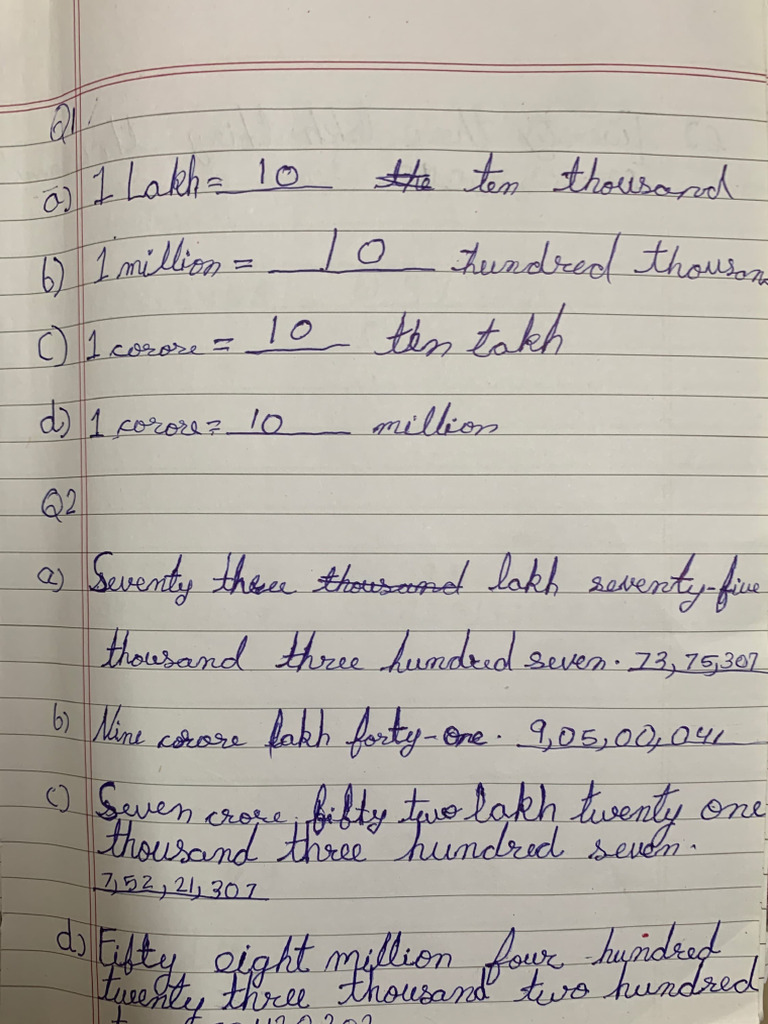 Q1
a) 1 Lakh = 10 ten thousand
b) 1 million = 10 hundred thousan
c) 1 corore = 10 ten lakh
d) 1 corore = 10 million
Q2
a) Seventy three thousand lakh seventy-five
thousand three hundred seven. 73,75,307
b) Nine corore lakh forty-one. 9,05,00,041
c) Seven crore fifty two lakh twenty one
thousand three hundred seven.
7,52,21,307
d) Fifty eight million four hundred
twenty three thousand two hundred